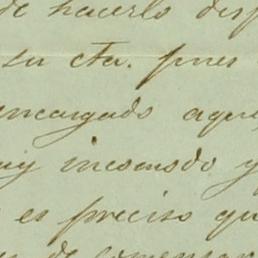 de hacerlo disp
su cta. pues
encargado aque
uy incomodo y
es preciso qu
de comenzar